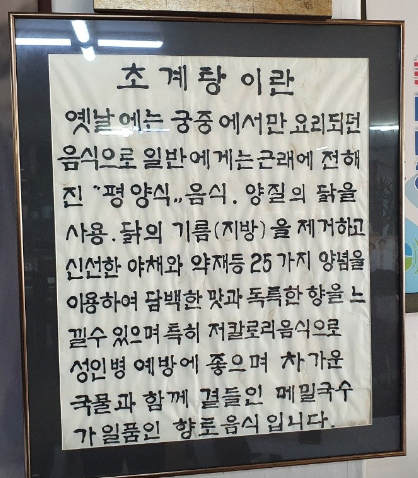 초계탕이란
옛날에는 궁중에서만 요리되던
음식으로 일반에게는 근래에 전해
진 "평양식„ 음식. 양질의 닭을
사용. 닭의 기름(지방)을 제거하고
신선한 야채와 약재등 25가지 양념을
이용하여 담백한 맛과 독특한 향을 느
낄수 있으며 특히 저칼로리음식으로
성인병 예방에 좋으며 차가운
국물과 함께 곁들인 메밀국수
가 일품인 향로음식입니다.